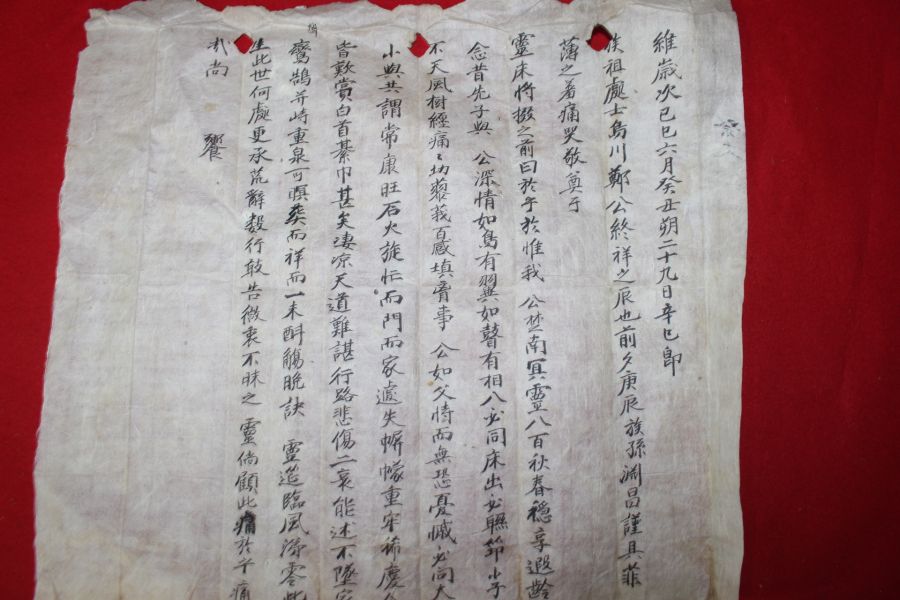 維歲次己巳六月癸丑朔二十九日辛巳卽
族祖處士烏川鄭公終祥之辰也前夕庚辰族孫淵昌謹具菲
薄之着痛哭敬奠于
靈床將掇之前曰於乎於惟我 公楚南冥靈八百秋春穩享遐齡
念昔先子與 公深情如鳥有翼如瞽有相入必同床出必聯節小子
不天風樹經痛〻切蓼莪百感塡膺事 公如父恃而無恐憂慽必同大
小與共謂常康旺石火旋忙而門而家遽失帡幪重牢稀慶
皆歎賞白首綦巾甚矣凄凉天道難諶行路悲傷二哀能述不墜
鸞鵠幷峙重泉可瞑葬而祥而一未酹觴晩訣 靈筵臨風涕零此
生此世何處更承荒辭數行敢告微衷不昧之 靈倘顧此痛於乎痛
哉尚 饗